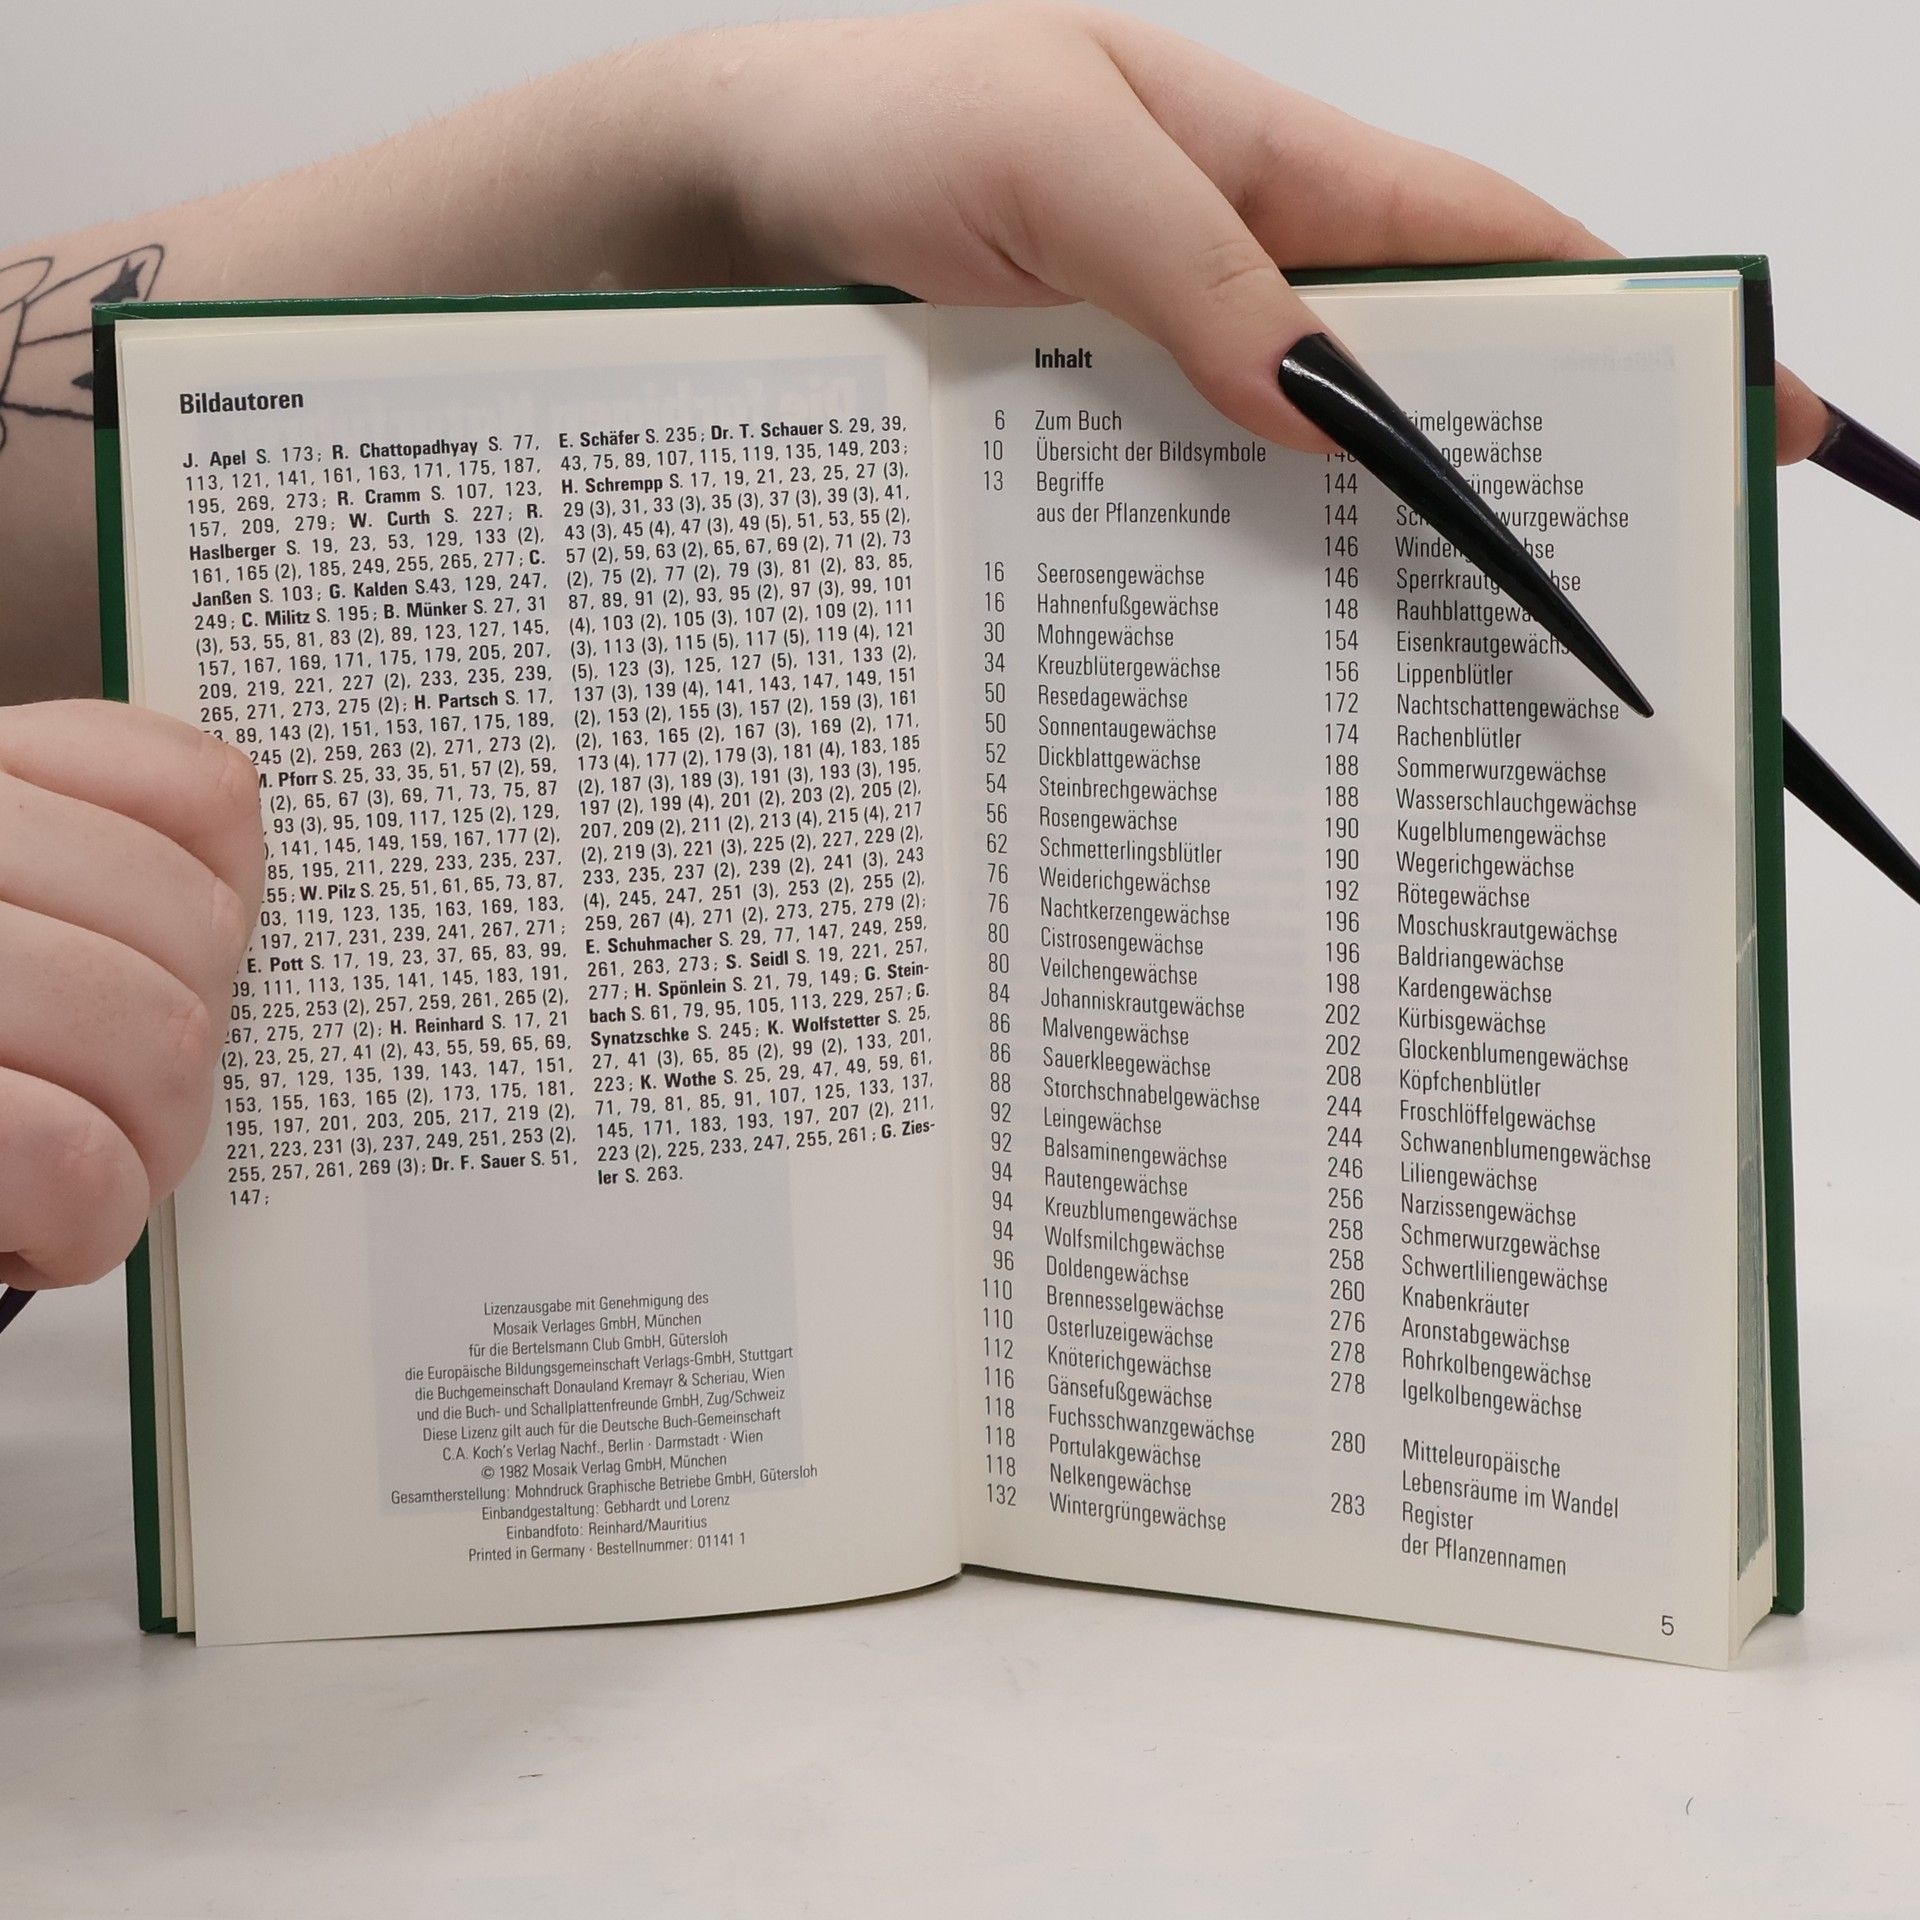 Bildautoren
J. Apel S. 173; R. Chattopadhyay S. 77,
113, 121, 141, 161, 163, 171, 175, 187,
195, 269, 273; R. Cramm S. 107, 123,
157, 209, 279; W. Curth S. 227; R.
Haslberger S. 19, 23, 53, 129, 133 (2),
161, 165 (2), 185, 249, 255, 265, 277; C.
Janßen S. 103; G. Kalden S.43, 129, 247,
249; C. Militz S. 195; B. Münker S. 27, 31
(3), 53, 55, 81, 83 (2), 89, 123, 127, 145,
157, 167, 169, 171, 175, 179, 205, 207,
209, 219, 221, 227 (2), 233, 235, 239,
265, 271, 273, 275 (2); H. Partsch S. 17,
89, 143 (2), 151, 153, 167, 175, 189,
245 (2), 259, 263 (2), 271, 273 (2),
M. Pforr S. 25, 33, 35, 51, 57 (2), 59,
(2), 65, 67 (3), 69, 71, 73, 75, 87
, 93 (3), 95, 109, 117, 125 (2), 129,
, 141, 145, 149, 159, 167, 177 (2),
85, 195, 211, 229, 233, 235, 237,
55; W. Pilz S. 25, 51, 61, 65, 73, 87,
03, 119, 123, 135, 163, 169, 183,
, 197, 217, 231, 239, 241, 267, 271;
E. Pott S. 17, 19, 23, 37, 65, 83, 99,
09, 111, 113, 135, 141, 145, 183, 191,
05, 225, 253 (2), 257, 259, 261, 265 (2),
267, 275, 277 (2); H. Reinhard S. 17, 21
(2), 23, 25, 27, 41 (2), 43, 55, 59, 65, 69,
95, 97, 129, 135, 139, 143, 147, 151,
153, 155, 163, 165 (2), 173, 175, 181,
195, 197, 201, 203, 205, 217, 219 (2),
221, 223, 231 (3), 237, 249, 251, 253 (2),
255, 257, 261, 269 (3); Dr. F. Sauer S. 51,
147;
E. Schäfer S. 235; Dr. T. Schauer S. 29, 39,
43, 75, 89, 107, 115, 119, 135, 149, 203;
H. Schrempp S. 17, 19, 21, 23, 25, 27 (3),
29 (3), 31, 33 (3), 35 (3), 37 (3), 39 (3), 41,
43 (3), 45 (4), 47 (3), 49 (5), 51, 53, 55 (2),
57 (2), 59, 63 (2), 65, 67, 69 (2), 71 (2), 73
(2), 75 (2), 77 (2), 79 (3), 81 (2), 83, 85,
87, 89, 91 (2), 93, 95 (2), 97 (3), 99, 101
(4), 103 (2), 105 (3), 107 (2), 109 (2), 111
(3), 113 (3), 115 (5), 117 (5), 119 (4), 121
(5), 123 (3), 125, 127 (5), 131, 133 (2),
137 (3), 139 (4), 141, 143, 147, 149, 151
(2), 153 (2), 155 (3), 157 (2), 159 (3), 161
(2), 163, 165 (2), 167 (3), 169 (2), 171,
173 (4), 177 (2), 179 (3), 181 (4), 183, 185
(2), 187 (3), 189 (3), 191 (3), 193 (3), 195,
197 (2), 199 (4), 201 (2), 203 (2), 205 (2),
207, 209 (2), 211 (2), 213 (4), 215 (4), 217
(2), 219 (3), 221 (3), 225 (2), 227, 229 (2),
233, 235, 237 (2), 239 (2), 241 (3), 243
(4), 245, 247, 251 (3), 253 (2), 255 (2),
259, 267 (4), 271 (2), 273, 275, 279 (2);
E. Schuhmacher S. 29, 77, 147, 249, 259,
261, 263, 273; S. Seidl S. 19, 221, 257,
277; H. Spönlein S. 21, 79, 149; G. Stein-
bach S. 61, 79, 95, 105, 113, 229, 257; G.
Synatzschke S. 245; K. Wolfstetter S. 25,
27, 41 (3), 65, 85 (2), 99 (2), 133, 201,
223; K. Wothe S. 25, 29, 47, 49, 59, 61,
71, 79, 81, 85, 91, 107, 125, 133, 137,
145, 171, 183, 193, 197, 207 (2), 211,
223 (2), 225, 233, 247, 255, 261; G. Zies-
ler S. 263.
Lizenzausgabe mit Genehmigung des
Mosaik Verlages GmbH, München
für die Bertelsmann Club GmbH, Gütersloh
die Europäische Bildungsgemeinschaft Verlags-GmbH, Stuttgart
die Buchgemeinschaft Donauland Kremayr & Scheriau, Wien
und die Buch- und Schallplattenfreunde GmbH, Zug/Schweiz
Diese Lizenz gilt auch für die Deutsche Buch-Gemeinschaft
C.A. Koch's Verlag Nachf., Berlin · Darmstadt · Wien
© 1982 Mosaik Verlag GmbH, München
Gesamtherstellung: Mohndruck Graphische Betriebe GmbH, Gütersloh
Einbandgestaltung: Gebhardt und Lorenz
Einbandfoto: Reinhard/Mauritius
Printed in Germany · Bestellnummer: 01141 1
Inhalt
6 Zum Buch
10 Übersicht der Bildsymbole
13 Begriffe
aus der Pflanzenkunde
16 Seerosengewächse
16 Hahnenfußgewächse
30 Mohngewächse
34 Kreuzblütergewächse
50 Resedagewächse
50 Sonnentaugewächse
52 Dickblattgewächse
54 Steinbrechgewächse
56 Rosengewächse
62 Schmetterlingsblütler
76 Weiderichgewächse
76 Nachtkerzengewächse
80 Cistrosengewächse
80 Veilchengewächse
84 Johanniskrautgewächse
86 Malvengewächse
86 Sauerkleegewächse
88 Storchschnabelgewächse
92 Leingewächse
92 Balsaminengewächse
94 Rautengewächse
94 Kreuzblumengewächse
94 Wolfsmilchgewächse
96 Doldengewächse
110 Brennesselgewächse
110 Osterluzeigewächse
112 Knöterichgewächse
116 Gänsefußgewächse
118 Fuchsschwanzgewächse
118 Portulakgewächse
118 Nelkengewächse
132 Wintergrüngewächse
144
144
146
146
148
154 Eisenkrautgewächse
156 Lippenblütler
172 Nachtschattengewächse
174 Rachenblütler
188 Sommerwurzgewächse
188 Wasserschlauchgewächse
190 Kugelblumengewächse
190 Wegerichgewächse
192 Rötegewächse
196 Moschuskrautgewächse
196 Baldriangewächse
198 Kardengewächse
202 Kürbisgewächse
202 Glockenblumengewächse
208 Köpfchenblütler
244 Froschlöffelgewächse
244 Schwanenblumengewächse
246 Liliengewächse
256 Narzissengewächse
258 Schmerwurzgewächse
258 Schwertliliengewächse
260 Knabenkräuter
276 Aronstabgewächse
278 Rohrkolbengewächse
278 Igelkolbengewächse
280 Mitteleuropäische
Lebensräume im Wandel
283 Register
der Pflanzennamen
5